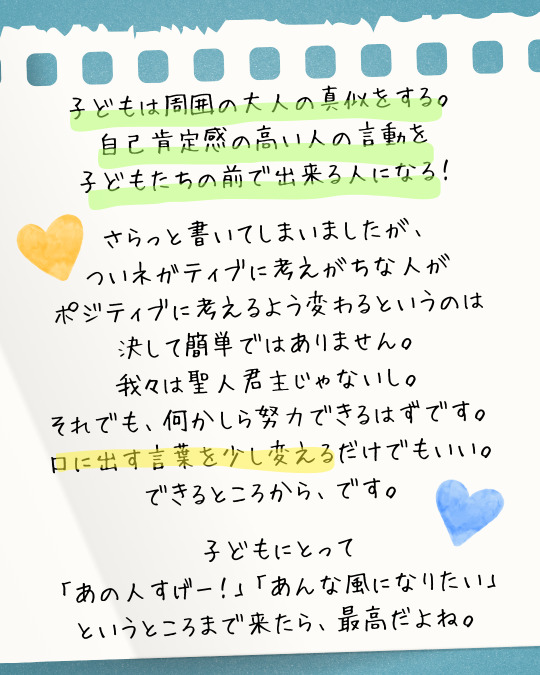 子どもは周囲の大人の真似をする。
自己肯定感の高い人の言動を
子どもたちの前で出来る人になる！
さらっと書いてしまいましたが、
ついネガティブに考えがちな人が
ポジティブに考えるよう変わるというのは
決して簡単ではありません。
我々は聖人君主じゃないし。
それでも、何かしら努力できるはずです。
口に出す言葉を少し変えるだけでもいい。
できるところから、です。
子どもにとって
「あの人すげー！」「あんな風になりたい」
というところまで来たら、最高だよね。